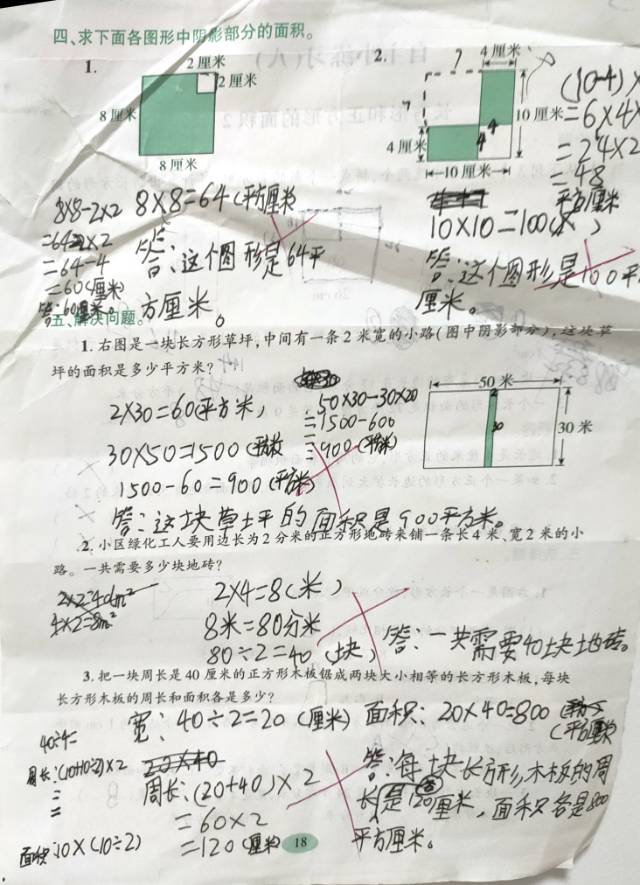 四、求下面各图形中阴影部分的面积。
1.
2厘米
2厘米
8厘米
8厘米
2.
?
4厘米
10厘米
4厘米
4
4
10厘米
(10-4)×
=6×4×
=24×2
=48
平方厘米
8×8-2×2
=64-2×2
=64-4
=60(厘米)
8×8=64(平方厘米)
答:这个图形是64平
方厘米。
10×10=100(
答:这个图形是100平
厘米。
五、解决问题。
1. 右图是一块长方形草坪,中间有一条2米宽的小路(图中阴影部分),这块草
坪的面积是多少平方米?
50米
2
30
30米
2×30=60(平方米)
30×50=1500(
1500-60=900(平方米)
50×30-30×20
=1500-600
=900(平方米)
答:这块草土平的面积是900平方米。
2. 小区绿化工人要用边长为2分米的正方形地砖来铺一条长4米、宽2米的小
路。一共需要多少块地砖?
2×2=4dm²
4×2=8m²
2×4=8(米)
8米=80分米
80÷2=40(块)
答:一共需要40块地砖。
3. 把一块周长是40厘米的正方形木板锯成两块大小相等的长方形木板,每块
长方形木板的周长和面积各是多少?
40÷4=
周长:(10+10÷2)×2
=
=
面积:10×(10÷2)
宽:40÷2=20(厘米)
20×40
周长:(20+40)×2
=60×2
=120(厘米)
面积:20×40=800
(平方厘米)
答:每块长方形木板的周
长是120厘米,面积各是800
平方厘米。
18